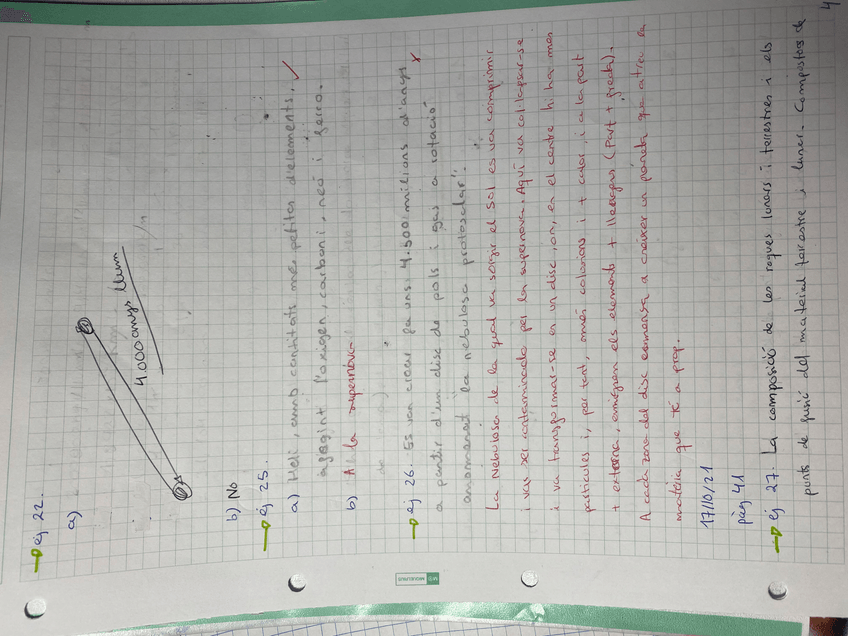 → ej 22.
a)
4.000 anys llum
b) No
→ ej 25.
a) Heli, amb cantitats més petites d'elements,
afegint l'oxigen, carboni, neó i ferro.
b) A la supernova.
→ ej 26. Es van crear fa uns 4.500 milions d'anys
a partir d'un disc de pols i gas a rotació
anomenat la nebulosa protosolar".
La Nebulosa de la qual va sorgir el Sol es va comprimir
i va ser contaminada per la supernova. Aquí va col·lapsar-se
i va transformar-se en un disc, on, en el centre hi ha més
partícules i, per tant, més colisions i + calor, i a la part
+ externa, emigran els elements + lleugers (part + freda).
A cada zona del disc comença a créixer un planeta que atreu la
matèria que té a prop.
17/10/21
pàg 41
→ ej 27. La composició de les roques lunars i terrestres i els
punts de fusió del material terrestre i lunar. Compostos de
4
MIQUELRIUS